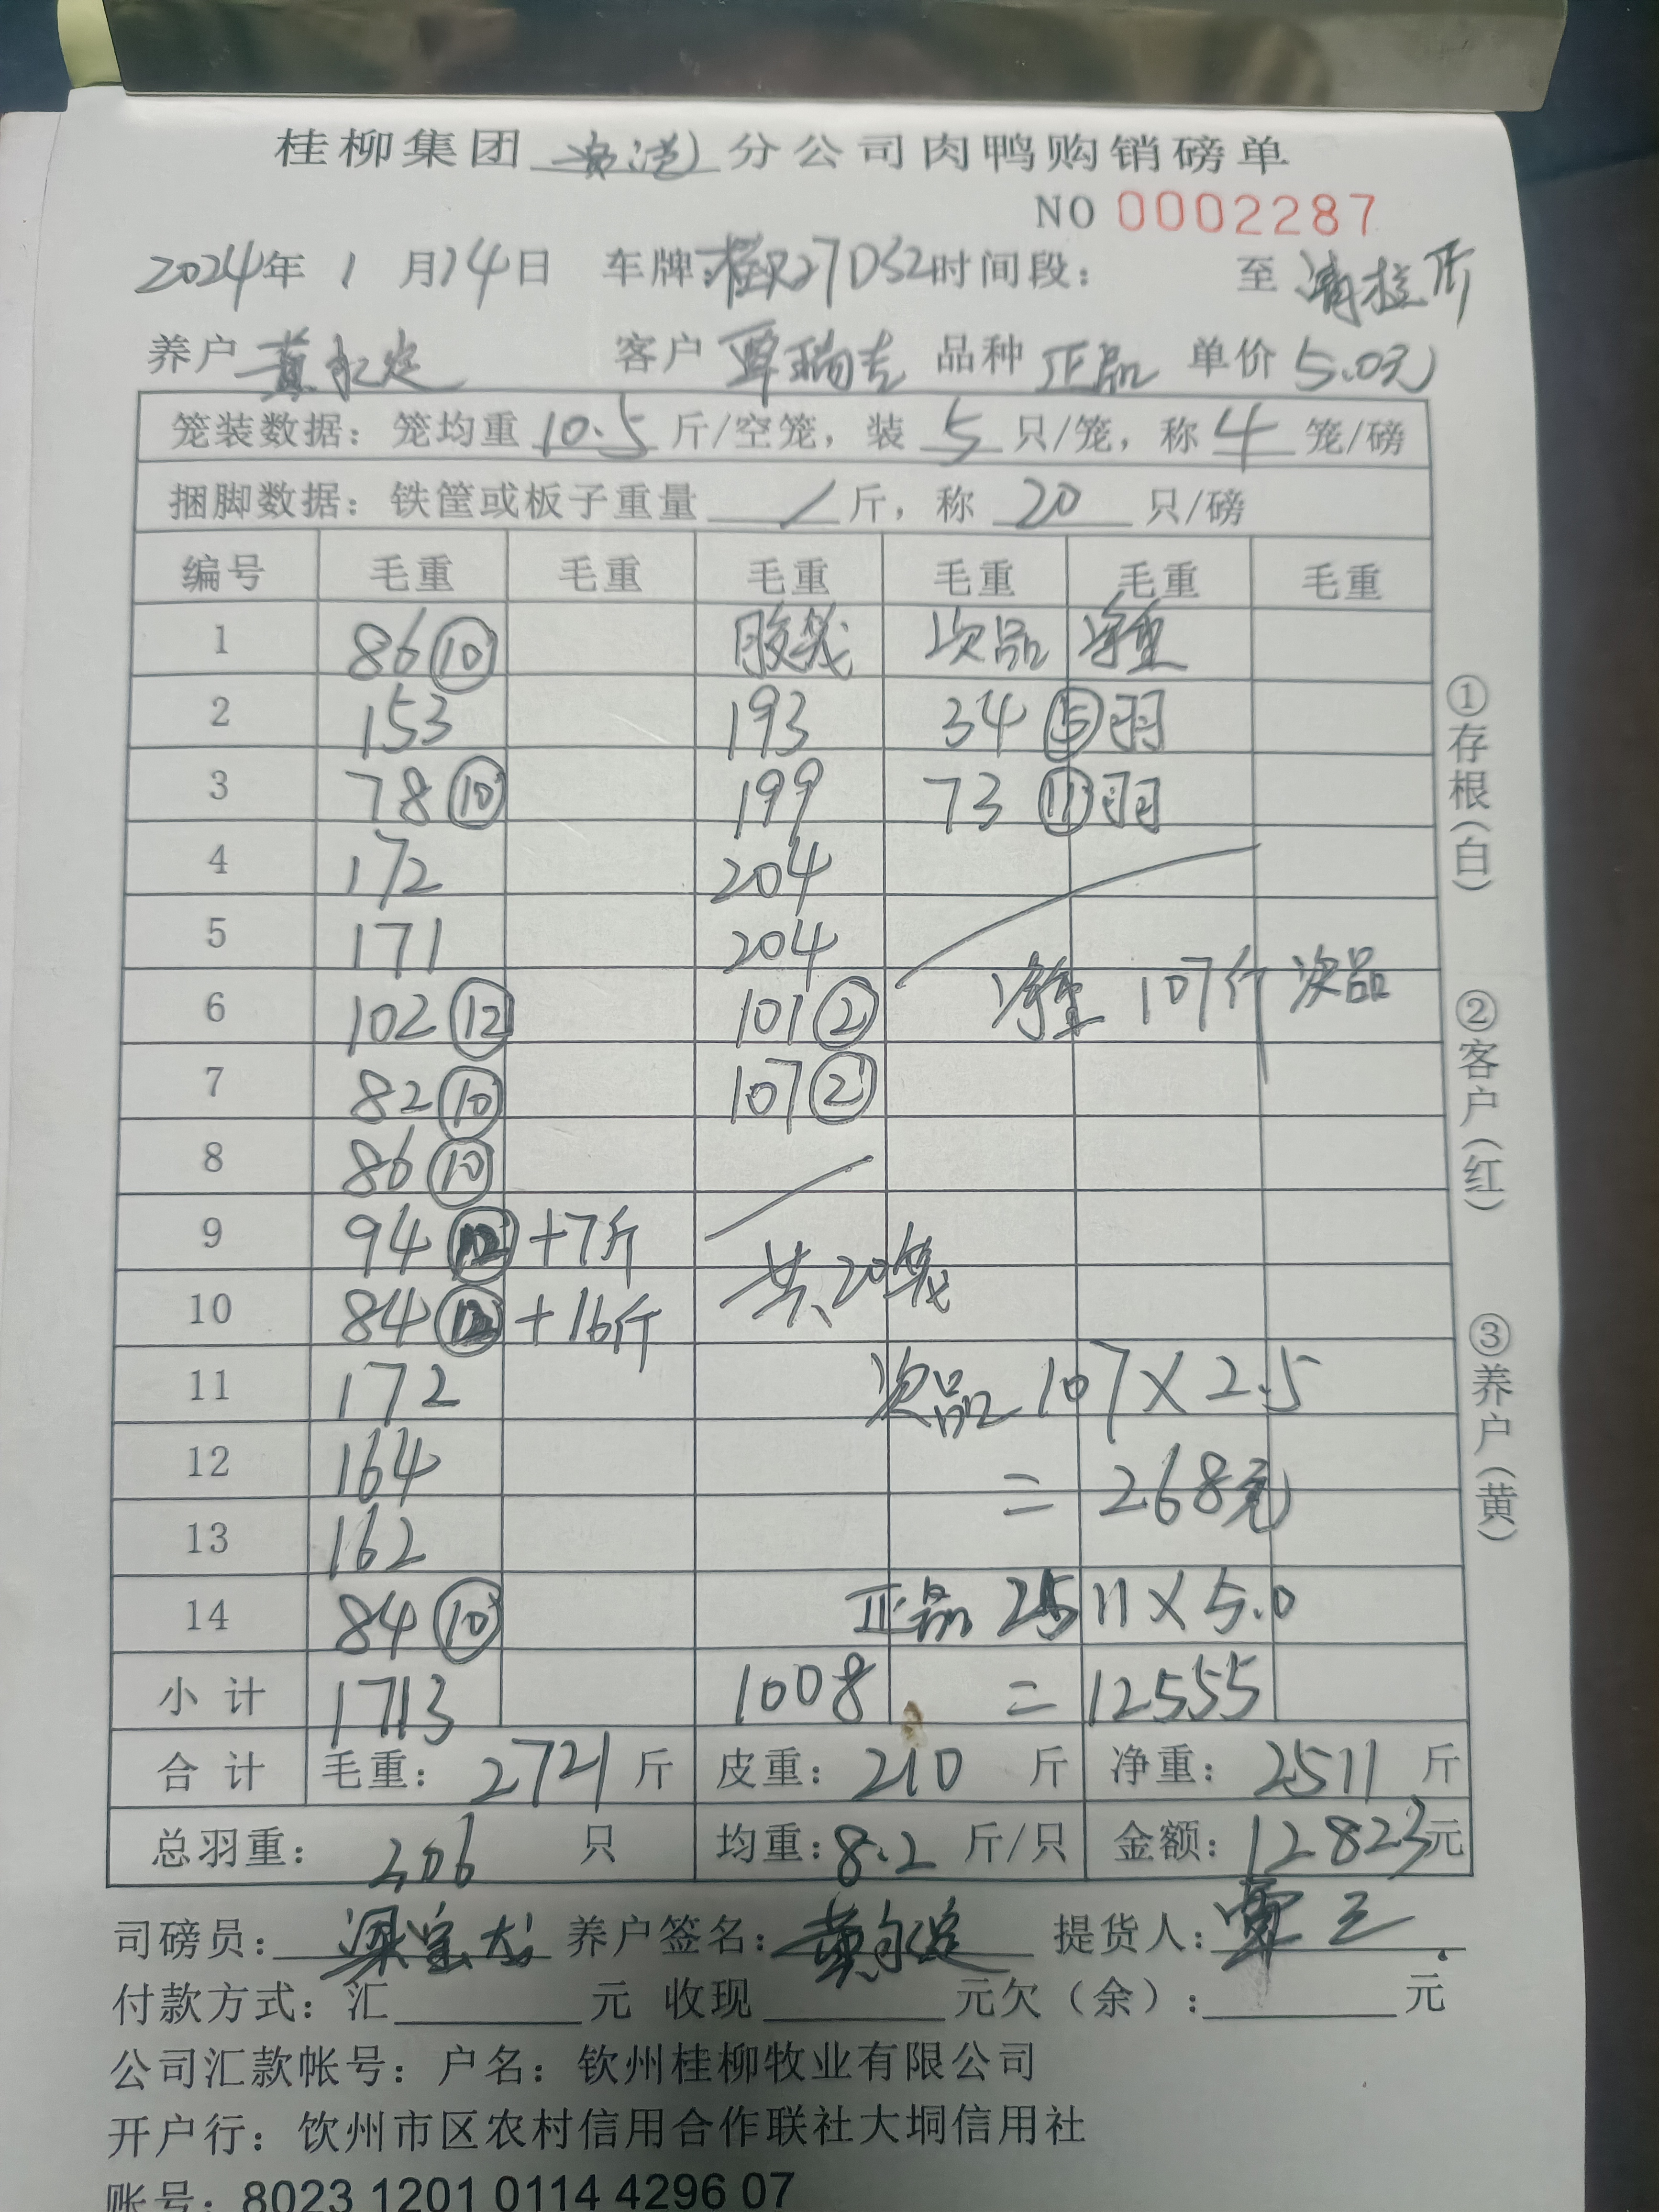 桂柳集团 贵港 分公司肉鸭购销磅单
NO 0002287
2024年 1 月14日 车牌: 27D52 时间段: 至
养户 黄永定 客户 覃瑞吉 品种 正品 单价 5.0元
笼装数据: 笼均重 10.5 斤/空笼, 装 5 只/笼, 称 4 笼/磅
捆脚数据: 铁筐或板子重量 / 斤, 称 20 只/磅
编号 毛重 毛重 毛重 毛重 毛重 毛重
1 86⑩ 胶笼 次品 净重
2 153 193 34 ⑤羽
3 78⑩ 199 73 ⑪羽
4 172 204
5 171 204
6 102⑫ 101② 净重 107斤 次品
7 82⑩ 107②
8 86⑩
9 94⑫ +7斤
共20笼
10 84⑫ +16斤
11 172 次品 107×2.5
12 164 =268元
13 162
14 84⑩ 正品 2511×5.0
小计 1713 1008 =12555
合计 毛重: 2721 斤 皮重: 210 斤 净重: 2511 斤
总羽重: 306 只 均重: 8.2 斤/只 金额: 12823元
司磅员: 养户签名: 黄永定 提货人: 覃三
付款方式: 汇 元 收现 元欠(余): 元
公司汇款帐号: 户名: 钦州桂柳牧业有限公司
开户行: 钦州市区农村信用合作联社大垌信用社
账号: 8023 1201 0114 4296 07
①存根(白)
②客户(红)
③养户(黄)